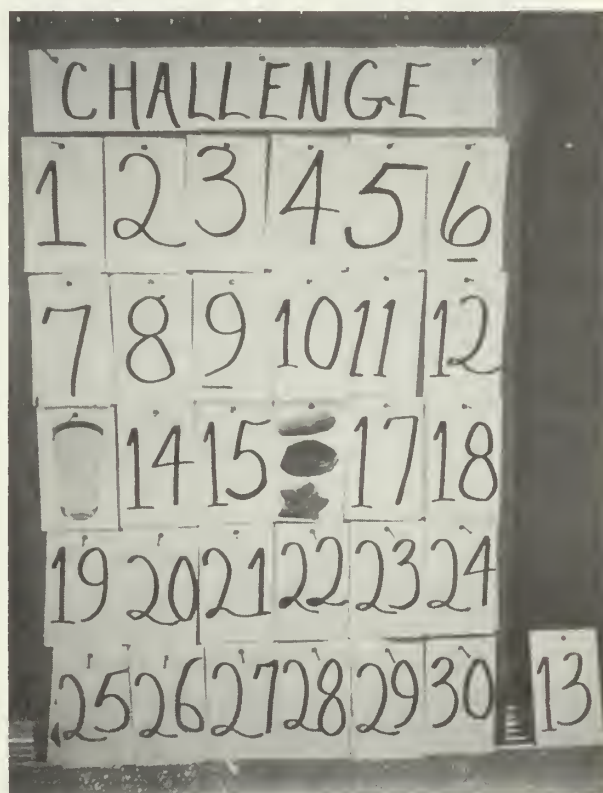 CHALLENGE
1 2 3 4 5 6
7 8 9 10 11 12
14 15 17 18
19 20 21 22 23 24
25 26 27 28 29 30 13